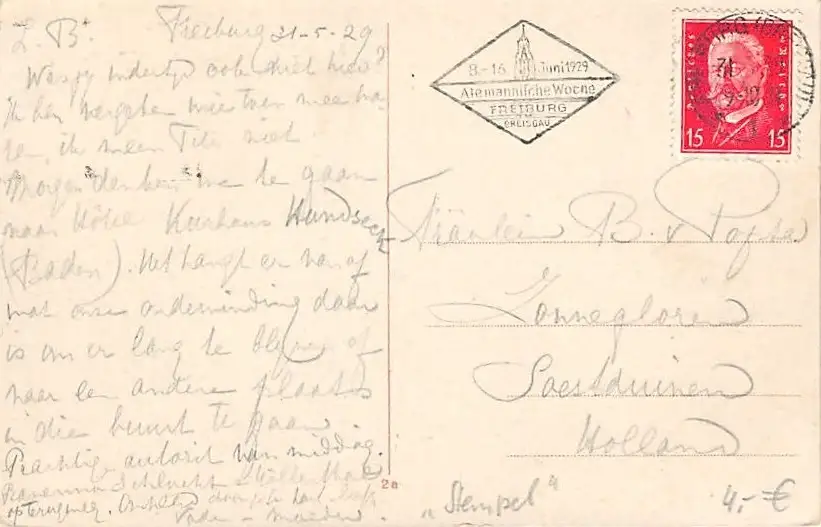 L. B.
Freiburg 21-5-29
Was jy indertyd ook niet hier?
Ik ben vergeten wie toen mee wa-
ren, ik meen Tite niet.
Morgen denken we te gaan
naar Hôtel Kurhaus Hundseck
(Baden). Het hangt er van af
wat onze ondervinding daar
is om er lang te blyven of
naar een andere plaats
in die buurt te gaan
Prachtige autorit van middag.
Ravenna Schlucht
op terugweg.
Vader - Moeder.
8.-16. Juni 1929
Alemannische Woche
FREIBURG
BREISGAU
15 15
Fräulein B. v Popta
Zonnegloren
Soestduinen
Holland
2a
„Stempel"
4,- €